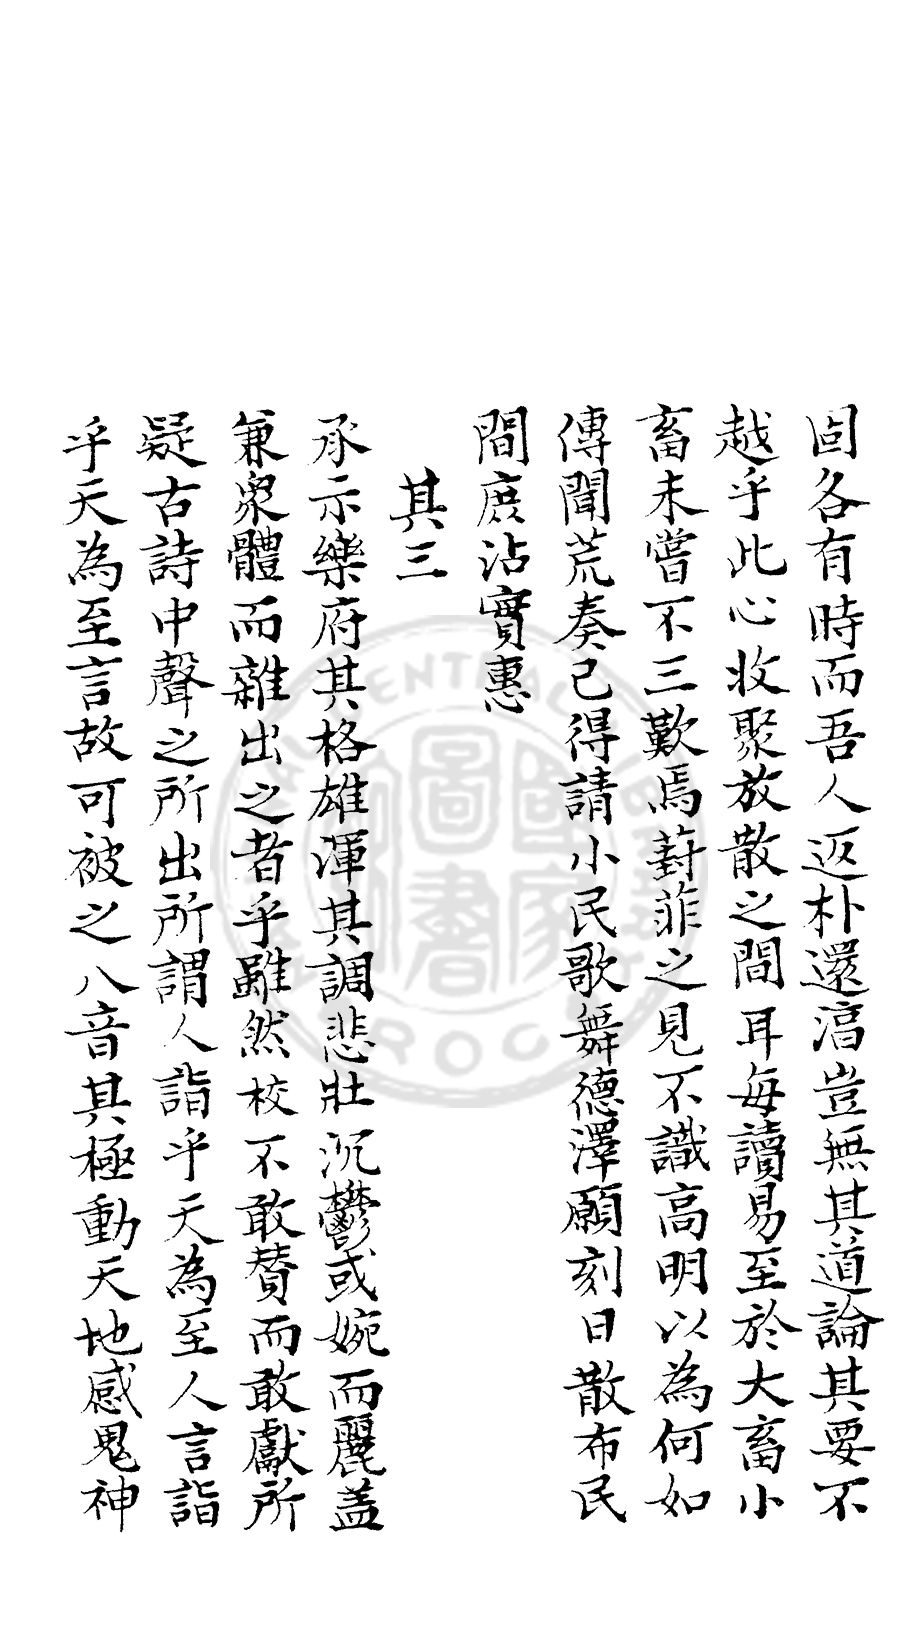 固各有時而吾人返朴還淳豈無其道論其要不
越乎此心收聚放散之間耳每讀易至於大畜小
畜未嘗不三歎焉葑菲之見不識高明以為何如
傳聞荒奏已得請小民歌舞德澤願刻日散布民
間庶沾實惠
其三
承示樂府其格雄渾其調悲壯沉鬱或婉而麗盖
兼衆體而雜出之者乎雖然校不敢賛而敢獻所
疑古詩中聲之所出所謂人詣乎天為至人言詣
乎天為至言故可被之八音其極動天地感鬼神
圖書
國家
CENTRAL
ROC